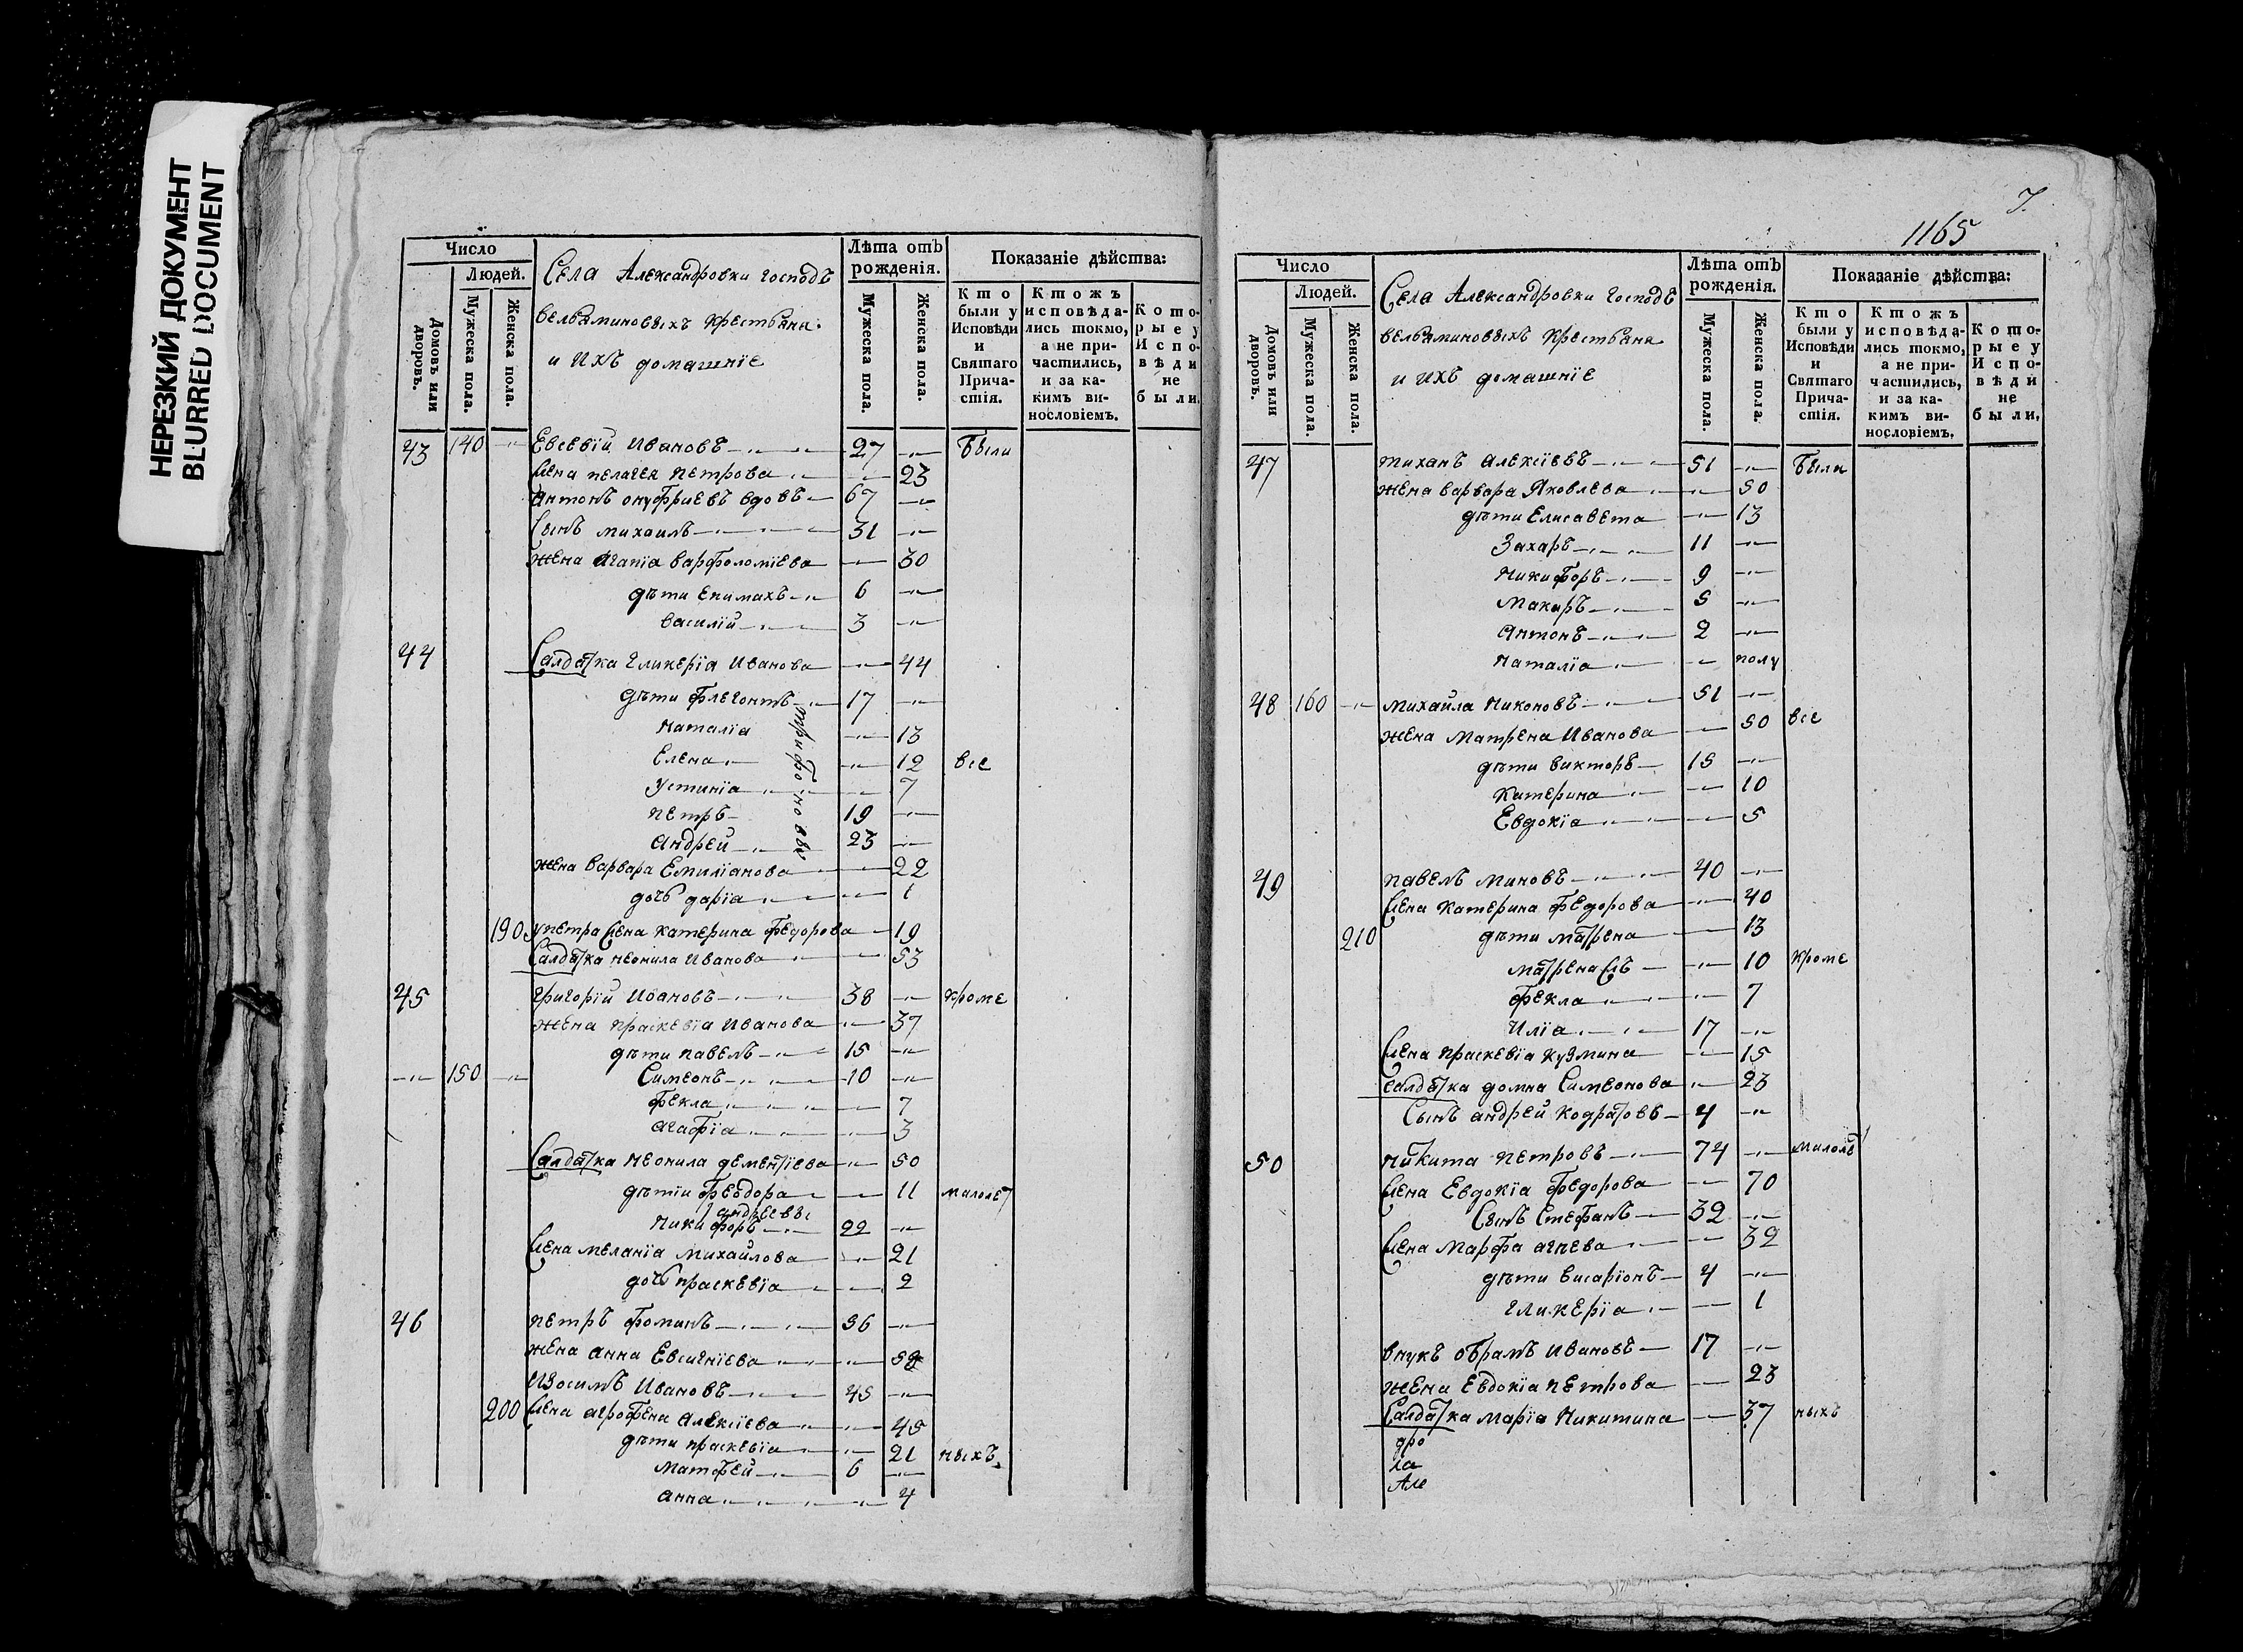 НЕРЕЗКИЙ ДОКУМЕНТ
BLURRED DOCUMENT
Число
Людей.
Домовъ или дворовъ.
Мужеска пола.
Женска пола.
Села Александровки господъ
вельяминовыхъ крестьяня
и ихъ домашніе
Лѣта отъ рожденія.
Мужеска пола.
Женска пола.
Показаніе дѣйства:
Кто были у Исповѣди и Святаго Причастія.
Ктожъ исповѣдались токмо, а не причастились, и за какимъ винословіемъ.
Которые у Исповѣди не были.
43 140 Евсевій Ивановъ 27 были
жена пелагея петрова 23
Антонъ онуфриевъ вдовъ 67
Сынъ михаилъ 31
жена Агапіа варфоломіева 30
дѣти епимахъ 6
василій 3
44 Салдатка гликеріа Иванова 44
дѣти флегонтъ 17
трифоновы
наталіа 13
Елена 12 все
устиніа 7
петръ 19
андрей 23
жена варвара Емиліанова 22
дочь даріа 1
190 упетра жена катерина федорова 19
Салдатка неонила Иванова 53
45 григорій Ивановъ 38 кроме
жена праскевіа Иванова 37
дѣти павелъ 15
150 Симеонъ 10
фекла 7
агафіа 3
Салдатка неонила дементіева 50
дѣтіи феодора 11 малолет
андреевы
никифоръ 22
жена меланіа михайлова 21
дочь праскевіа 2
46 петръ фоминъ 56
жена анна Евсигніева
Изосимъ Ивановъ 45
200 жена агрофена алексіева 45
дѣти праскевіа 21 ныхъ
матфей 6
анна 4
7.
1165
Число
Людей.
Домовъ или дворовъ.
Мужеска пола.
Женска пола.
Села Александровки господъ
вельяминовыхъ крестьяня
и ихъ домашніе
Лѣта отъ рожденія.
Мужеска пола.
Женска пола.
Показаніе дѣйства:
Кто были у Исповѣди и Святаго Причастія.
Ктожъ исповѣдались токмо, а не причастились, и за какимъ винословіемъ.
Которые у Исповѣди не были.
47 тиханъ алексіевъ 51 были
жена варвара Яковлева 50
дѣти Елисавета 13
Захаръ 11
никифоръ 9
макаръ 5
антонъ 2
наталіа полу
48 160 михайла никоновъ 51
жена матрена Иванова 50 все
дѣти викторъ 15
катерина 10
Евдокіа 5
49 павелъ миновъ 40
жена катерина федорова 40
210 дѣти матрена 13
матрена 10 кроме
фекла 7
Иліа 17
жена праскевіа кузмина 15
салдатка домна Симеонова 23
Сынъ андрей кодратовъ 4
50 никита петровъ 74 малолѣ
жена Евдокіа федорова 70
Сынъ стефанъ 32
жена марфа агпева 32
дѣти висаріонъ 4
гликеріа 1
внукъ обрамъ ивановъ 17
жена Евдокіа петрова 23
Салдатка маріа никитина 37 ныхъ
дро
ла
Але